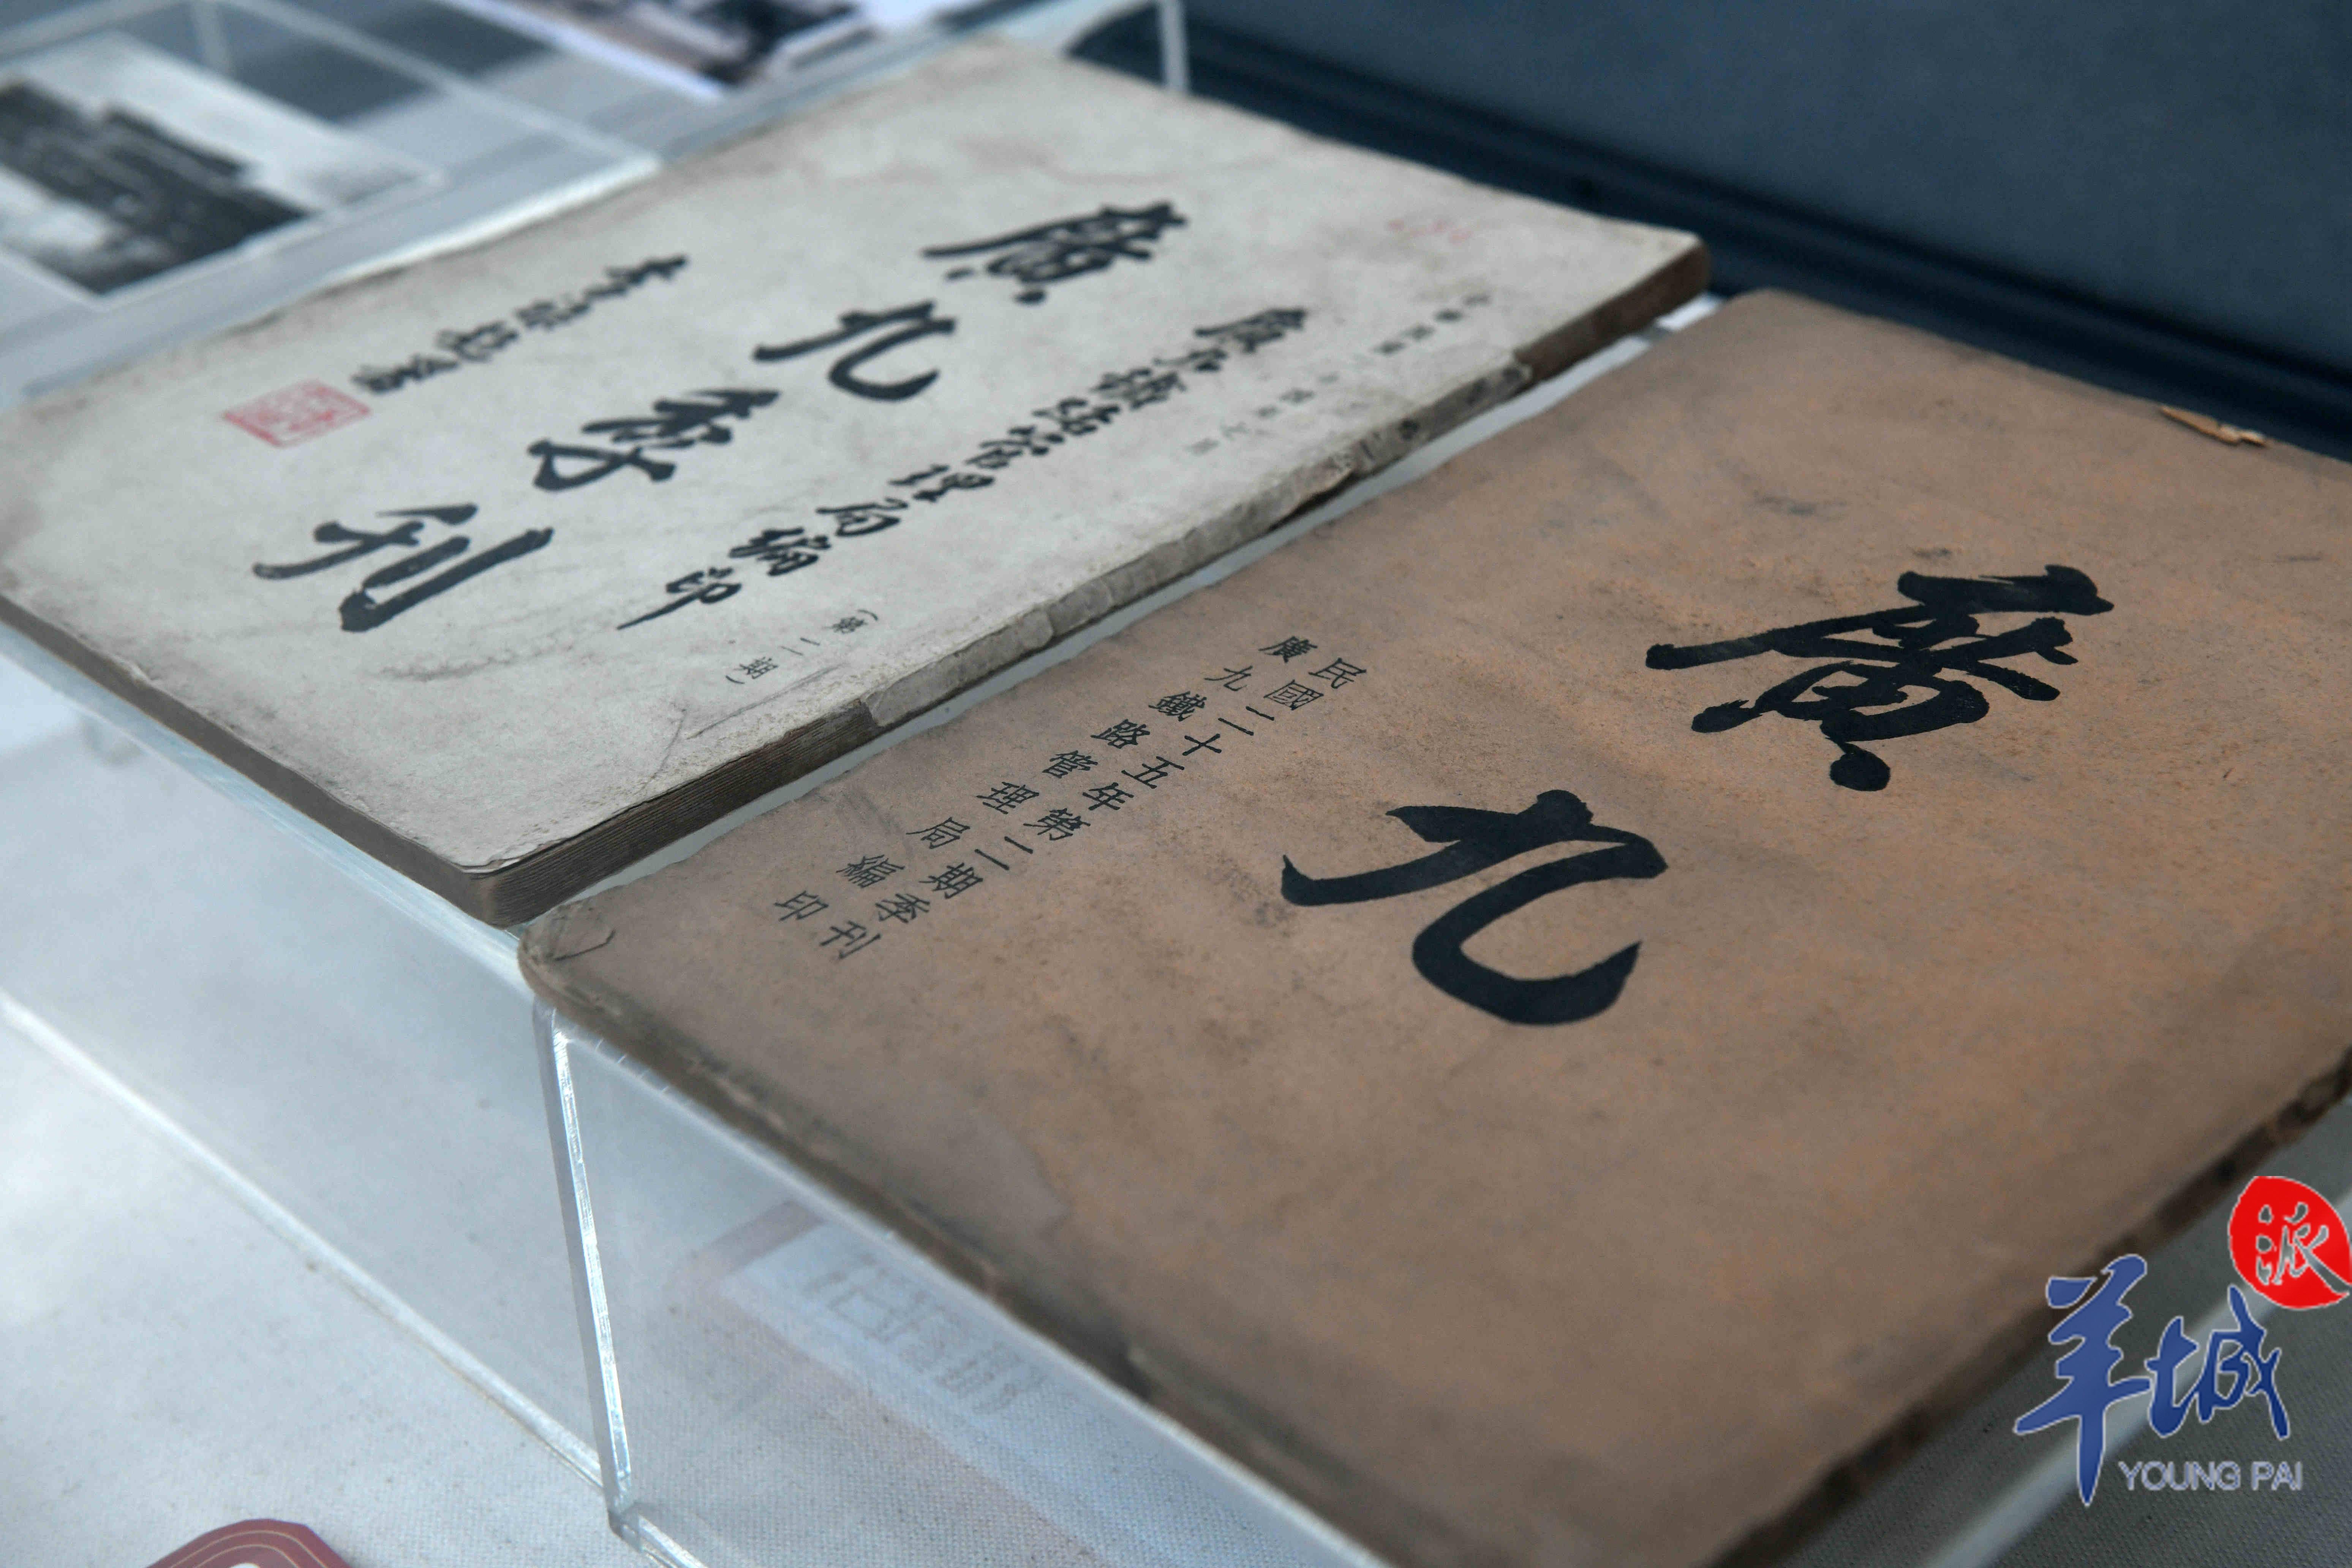 廣九季刊
廣九鐵路管理局編印
(第二期)
廣九
民國二十五年第二期季刊
廣九鐵路管理局編印
羊城
派
YOUNG PAI